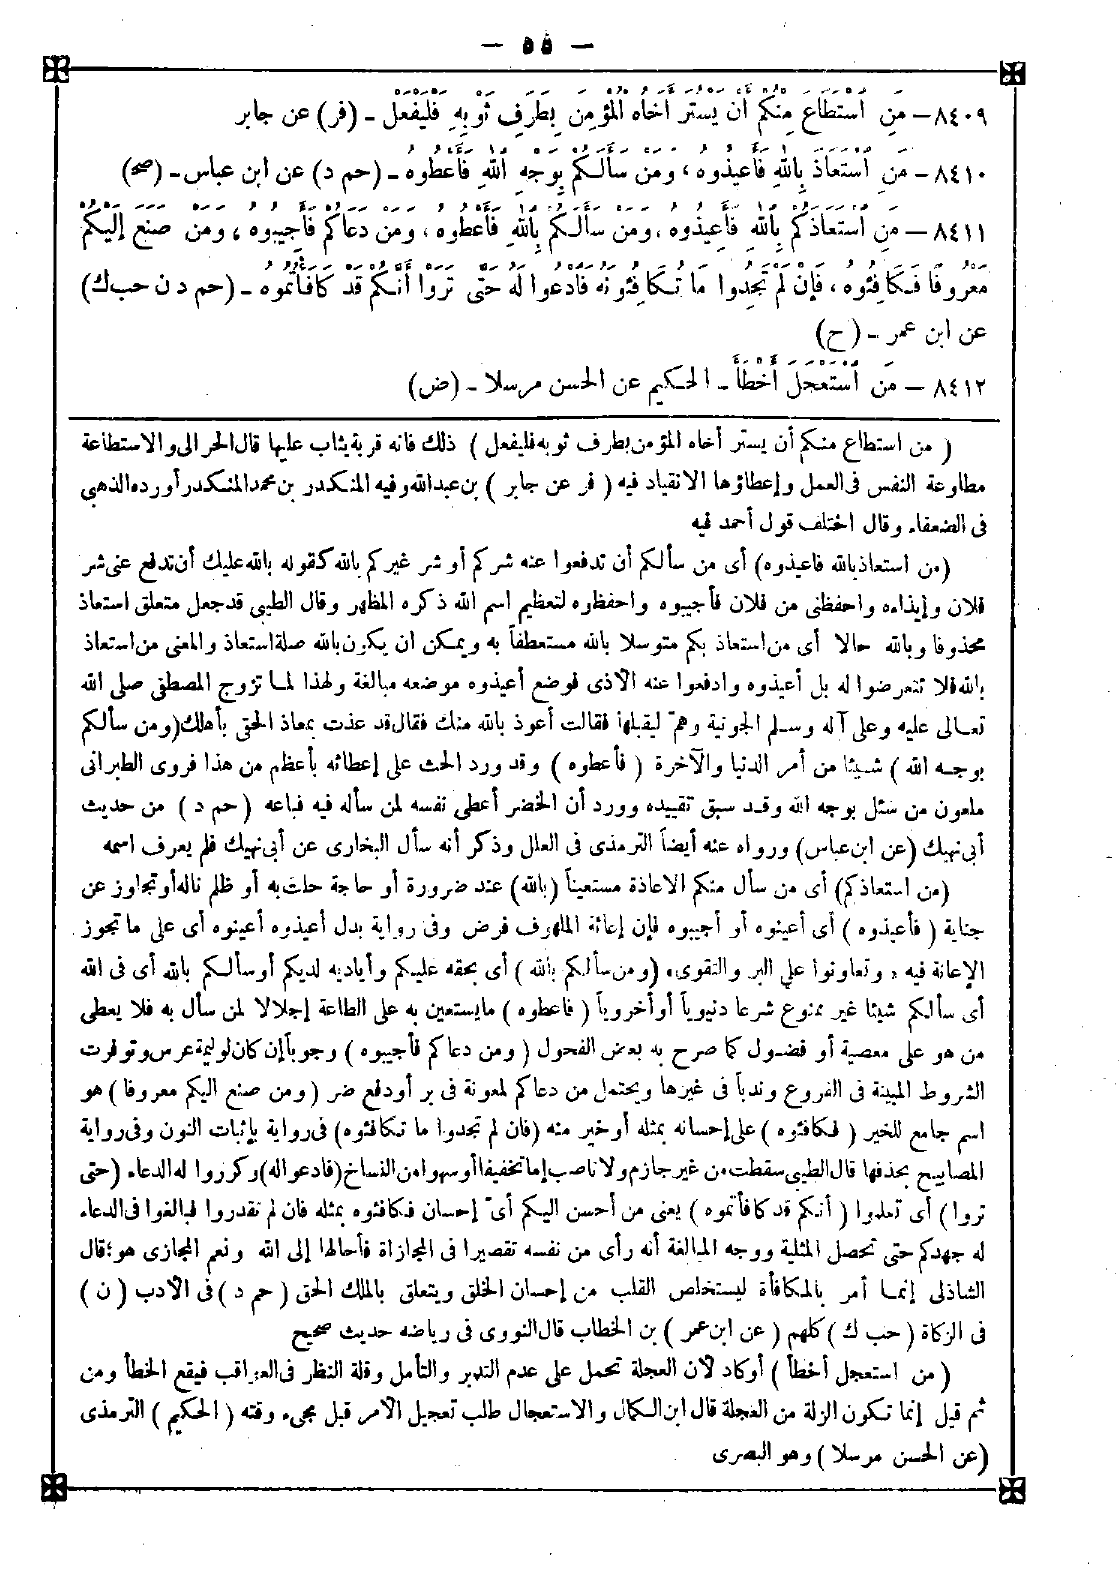 — ٥٥ —
٨٤٠٩ – مَنِ اسْتَطَاعَ مِنْكُمْ أَنْ يَسْتُرَ أَخَاهُ الْمُؤْمِنَ بِطَرَفِ ثَوْبِهِ فَلْيَفْعَلْ – (فر) عن جابر
٨٤١٠ – مَنِ اسْتَعَاذَ بِاللهِ فَأَعِيذُوهُ، وَمَنْ سَأَلَكُمْ بِوَجْهِ اللهِ فَأَعْطُوهُ – (حم د) عن ابن عباس – (صح)
٨٤١١ – مَنِ اسْتَعَاذَكُمْ بِاللهِ فَأَعِيذُوهُ، وَمَنْ سَأَلَكُمْ بِاللهِ فَأَعْطُوهُ، وَمَنْ دَعَاكُمْ فَأَجِيبُوهُ، وَمَنْ صَنَعَ إِلَيْكُمْ
مَعْرُوفًا فَكَافِئُوهُ، فَإِنْ لَمْ تَجِدُوا مَا تُكَافِئُونَهُ فَادْعُوا لَهُ حَتَّى تَرَوْا أَنَّكُمْ قَدْ كَافَأْتُمُوهُ – (حم د ن حب ك)
عن ابن عمر – (ح)
٨٤١٢ – مَنِ اسْتَعْجَلَ أَخْطَأَ – الحكيم عن الحسن مرسلا – (ض)
( من استطاع منكم أن يستر أخاه المؤمن بطرف ثوبه فليفعل ) ذلك فانه قربة يثاب عليها قال الحرالى والاستطاعة
مطاوعة النفس فى العمل وإعطاؤها الانقياد فيه ( فر عن جابر ) بن عبد الله وفيه المنكدر بن محمد المنكدر أورده الذهبي
فى الضعفاء وقال اختلف قول أحمد فيه
(من استعاذ بالله فاعيذوه) أى من سألكم أن تدفعوا عنه شركم أو شر غيركم بالله كقوله بالله عليك أن تدفع عنى شر
فلان وإيذاءه واحفظنى من فلان فأجيبوه واحفظوه لتعظيم اسم الله ذكره المظهر وقال الطيبى قد جعل متعلق استعاذ
محذوفا وبالله حالا أى من استعاذ بكم متوسلا بالله مستعطفاً به ويمكن ان يكون بالله صلة استعاذ والمعنى من استعاذ
بالله فلا تتعرضوا له بل أعيذوه وادفعوا عنه الأذى فوضع أعيذوه موضعه مبالغة ولهذا لما تزوج المصطفى صلى الله
تعالى عليه وعلى آله وسلم الجونية وهمّ ليقبلها فقالت أعوذ بالله منك فقال قد عذت بمعاذ الحقى بأهلك (ومن سألكم
بوجه الله ) شيئا من أمر الدنيا والآخرة ( فأعطوه ) وقد ورد الحث على إعطائه بأعظم من هذا فروى الطبرانى
ملعون من سئل بوجه الله وقد سبق تقييده وورد أن الخضر أعطى نفسه لمن سأله فيه فباعه ( حم د ) من حديث
أبى نهيك (عن ابن عباس) ورواه عنه أيضاً الترمذى فى العلل وذكر أنه سأل البخارى عن أبى نهيك فلم يعرف اسمه
(من استعاذكم) أى من سأل منكم الاعاذة مستعيناً (بالله) عند ضرورة أو حاجة حلت به أو ظلم ناله أو تجاوز عن
جناية ( فأعيذوه ) أى أعينوه أو أجيبوه فإن إعانة الملهوف فرض وفى رواية بدل أعيذوه أعينوه أى على ما تجوز
الإعانة فيه « وتعاونوا على البر والتقوى» (ومن سألكم بالله ) أى بحقه عليكم وأياديه لديكم أو سألكم بالله أى فى الله
أى سألكم شيئا غير ممنوع شرعا دنيوياً أو أخروياً ( فاعطوه ) ما يستعين به على الطاعة إجلالا لمن سأل به فلا يعطى
من هو على معصية أو فضول كما صرح به بعض الفحول ( ومن دعاكم فأجيبوه ) وجوباً إن كان لوليمة عرس وتوفرت
الشروط المبينة فى الفروع وندباً فى غيرها ويحتمل من دعاكم لمعونة فى بر أو دفع ضر ( ومن صنع اليكم معروفا ) هو
اسم جامع للخير ( فكافئوه ) على إحسانه بمثله أو خير منه (فان لم تجدوا ما تكافئوه) فى رواية بإثبات النون وفى رواية
المصابيح بحذفها قال الطيبى سقطت من غير جازم ولا ناصب إما تخفيفا أو سهوا من النساخ (فادعوا له) وكرروا له الدعاء (حتى
تروا) أى تعلموا ( أنكم قد كافأتموه ) يعنى من أحسن اليكم أىّ إحسان فكافئوه بمثله فان لم تقدروا فبالغوا فى الدعاء
له جهدكم حتى تحصل المثلية ووجه المبالغة أنه رأى من نفسه تقصيرا فى المجازاة فأحالها إلى الله ونعم المجازى هو؛ قال
الشاذلى إنما أمر بالمكافأة ليستخلص القلب من إحسان الخلق ويتعلق بالملك الحق ( حم د ) فى الأدب ( ن )
فى الزكاة ( حب ك ) كلهم ( عن ابن عمر ) بن الخطاب قال النووى فى رياضه حديث صحيح
( من استعجل أخطأ ) أو كاد لأن العجلة تحمل على عدم التدبر والتأمل وقلة النظر فى العواقب فيقع الخطأ ومن
ثم قيل إنما تكون الزلة من العجلة قال ابن الكمال والاستعجال طلب تعجيل الأمر قبل مجىء وقته ( الحكيم ) الترمذى
(عن الحسن مرسلا ) وهو البصرى